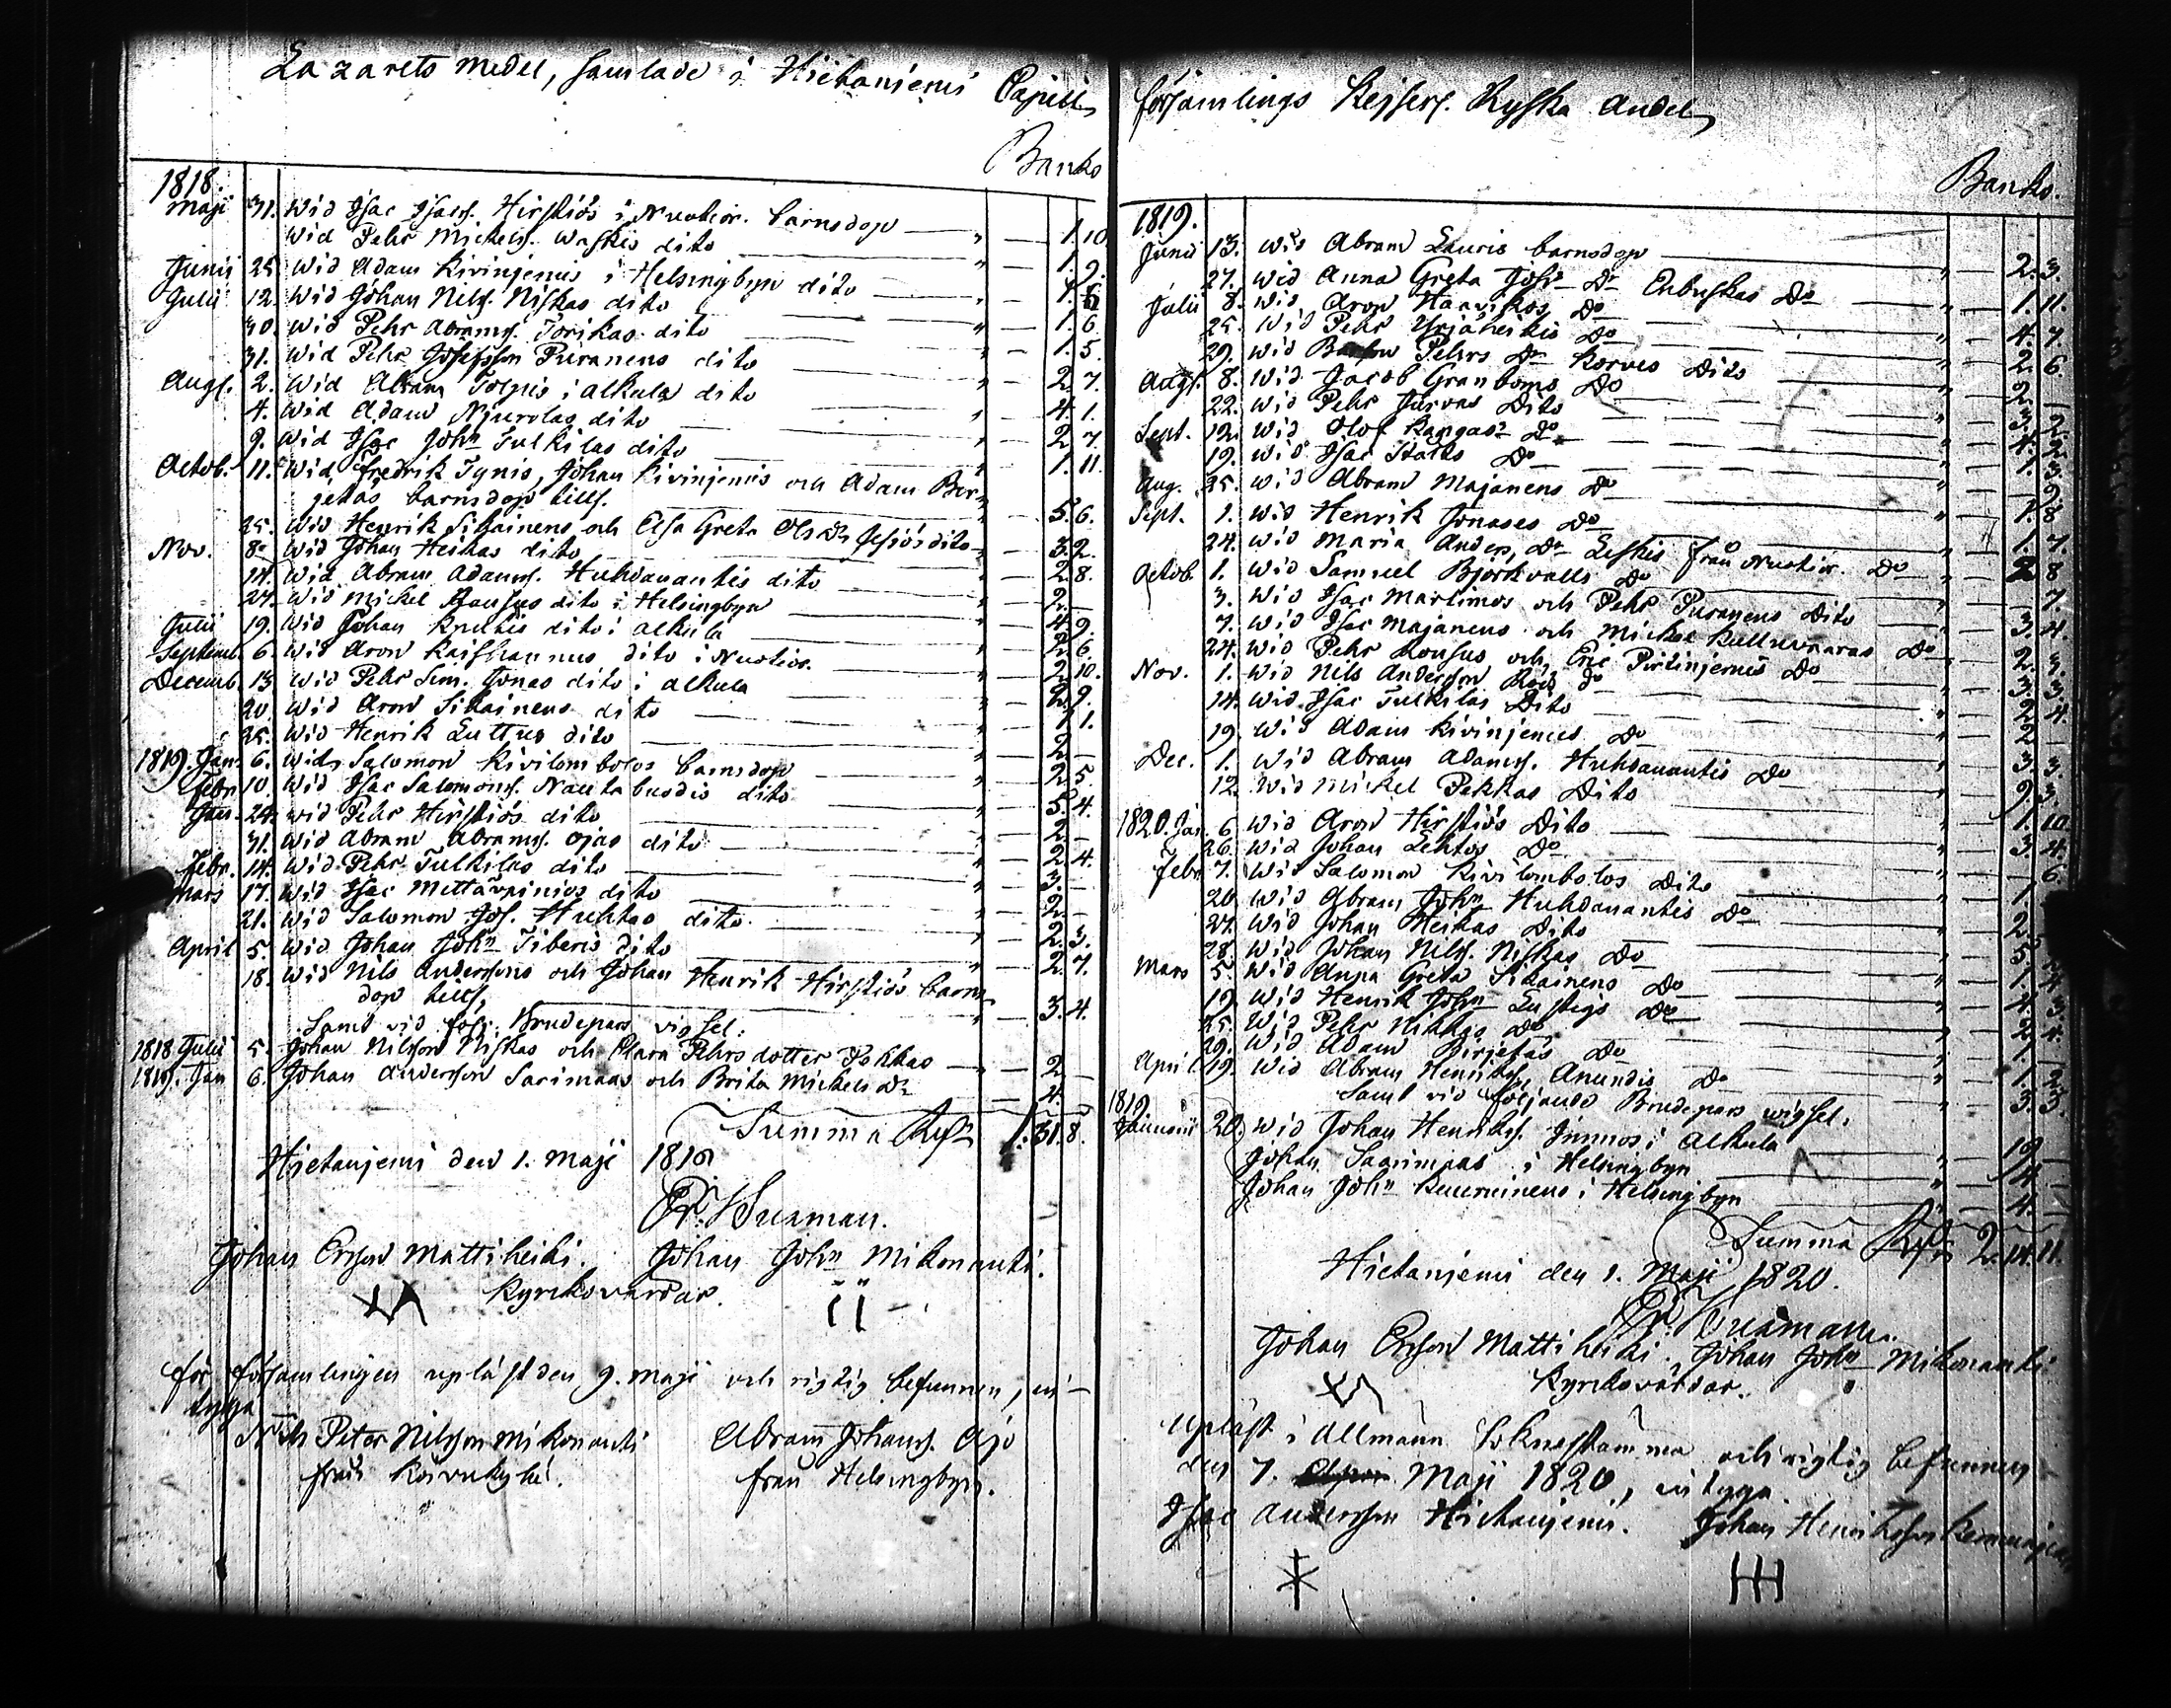 Lazarets medel, samlade i Hietaniemi Capell
Banko
1818.
Maji 31. Wid Isac Isacs. Hirstiös i Nuotior. barnsdop 1. 10.
Wid Pehr Mickels. Waskis dito 1.
Junii 25. Wid Adam Kivinjemis i Helsingbyn dito 1. 9.
Julii 12. Wid Johan Nils. Niskas dito 1. 6
30. Wid Pehr Abrams. Torikas dito 1. 6.
31. Wid Pehr Josefsson Puranens dito 1. 5.
Aug. 2. Wid Abram Tolpis i Alkula dito 2. 7.
4. Wid Adam Njurolas dito 4. 1.
9. Wid Isac Johns Tulkilas dito 2. 7.
Octob. 11. Wid Fredrik Tynis, Johan Kivinjemis och Adam Bir- 1. 11.
jetas barnsdop tills. 5. 6.
25. Wid Henrik Sikainens och Elsa Greta Ols Dr dito 3. 2.
Nov. 8. Wid Johan Heikas dito 2. 8.
14. Wid Abram Adams. Huhdanantis dito 2.
27. Wid Mickel dito i Helsingbyn 4. 9.
Julii 19. Wid Johan Knutis dito i Alkula 2. 6.
Septemb. 6. Wid Aron Kaishaunus dito i Nuotior. 2. 10.
Decemb. 13. Wid Pehr Sim. Jonas dito i Alkula 2. 9.
20. Wid Aron Sikainens dito 1. 1.
25. Wid Henrik Luttus dito 2.
1819. Jan. 6. Wid Salomon Kivilombolos barnsdop 2. 5.
Febr. 10. Wid Isac Salomons. Nautabuodis dito 5. 4.
Jan. 24. Wid Pehr Hirstiös dito 2.
31. Wid Abram Abrams. Ojas dito 2. 4.
Febr. 14. Wid Pehr Tulkilas dito 3.
Mars 17. Wid Isac Mettävainios dito 2.
21. Wid Salomon Jos. Huhtas dito 2. 3.
April 5. Wid Johan Johns Tiberis dito 2. 7.
18. Wid Nils Anderssons och Johan Henrik Hirstiös barns
dop tills. 3. 4.
Saml vid följ. Brudepars vigsel.
1818 Julii 5. Johan Nilsson Niskas och Clara Pehrs dotter Pekkas 2
1819. Jan 6. Johan Andersson Sarimaas och Brita Mickels Dr 4.
Summa Rdr 1. 31. 8.
Hietanjemi den 1. Maji 1819
Er. Wuxman.
Johan Ersson Mattiheiki. Johan Johns Mikonanti.
Kyrkovärdar.
för församlingen upläst den 9. Maji och rigtig befunnen, in-
tyga
Peter Nilsson Mikonanti Abram Johans. Ajo
från Koivukylä. från Helsingbyn.
församlings Kejserl. Ryska andel
Banko.
1819.
Junii 13. Wid Abram Lauris barnsdop 2. 3.
27. Wid Anna Greta Johs Dr Enbuskas Do 1. 11.
Julii 8. Wid Aron Haavikos Do 4. 7
25. Wid Pehr Yrjäheikis Do 2. 6.
29. Wid Pehrs Dr Korvos Dito 2.
Aug. 8. Wid Jacob Granboms Do 3. 2
22. Wid Pehr Turvas Dito 4. 2
Sept. 12. Wid Olof Kangas Do 1. 3.
19. Wid Isac Stålts Do 9.
Aug. 25. Wid Abram Majanens Do 1. 8
Sept. 1. Wid Henrik Jonases Do 1. 7.
24. Wid Maria Anders. Dr Leskis från Nuotior. Do 2 8
Octob. 1. Wid Samuel Björkvalls Do 7.
3. Wid Isac Martimos och Pehr Puranens Dito 3. 4.
7. Wid Isac Majanens och Mickel Kulluvaaras Do 2. 3.
24. Wid Pehr Kousus och Eric Pirtinjemis Do 3. 3.
Nov. 1. Wid Nils Andersson do 2. 4.
14. Wid Isac Tulkilas Dito 2
19. Wid Adam Kivinjemis Do 3. 3.
Dec. 1. Wid Abram Adams. Huhdanantis Do 9. 3.
12. Wid Mickel Pekkas Dito 1. 10.
1820. Jan. 6. Wid Aron Hirstiös Dito 3. 4.
26. Wid Johan Lehtos Do 6.
Febr. 7. Wid Salomon Kivilombolos Dito 1.
20. Wid Abram Johns Huhdanantis Do 2.
27. Wid Johan Heikas Dito 5.
28. Wid Johan Nils. Niskas Do 1. 4
Mars 5. Wid Anna Greta Sikainens Do 4. 3.
19. Wid Henrik Johns Lustigs Do 2. 4.
25. Wid Pehr Nikkas Do 1.
29. Wid Adam Birjetas Do 1. 2.
April 19. Wid Abram Henriks. Anundis Do 3. 3.
Saml vid följande Brudepars vigsel.
1819.
20. Wid Johan Henriks. Junnos i Alkula 10
Johan Saarimaas i Helsingbyn 4
Johan Johns i Helsingbyn 4.
Summa Rdr 2. 14. 11.
Hietanjemi den 1. Maji 1820.
Er. Wuxman.
Johan Ersson Mattiheiki. Johan Johns Mikonanti
Kyrkovärdar.
Upläst i Allmänn Soknestämma och rigtig befunnen
den 7. Maji 1820, intyga
Isac Andersson Hietanjemi. Johan Henriksson